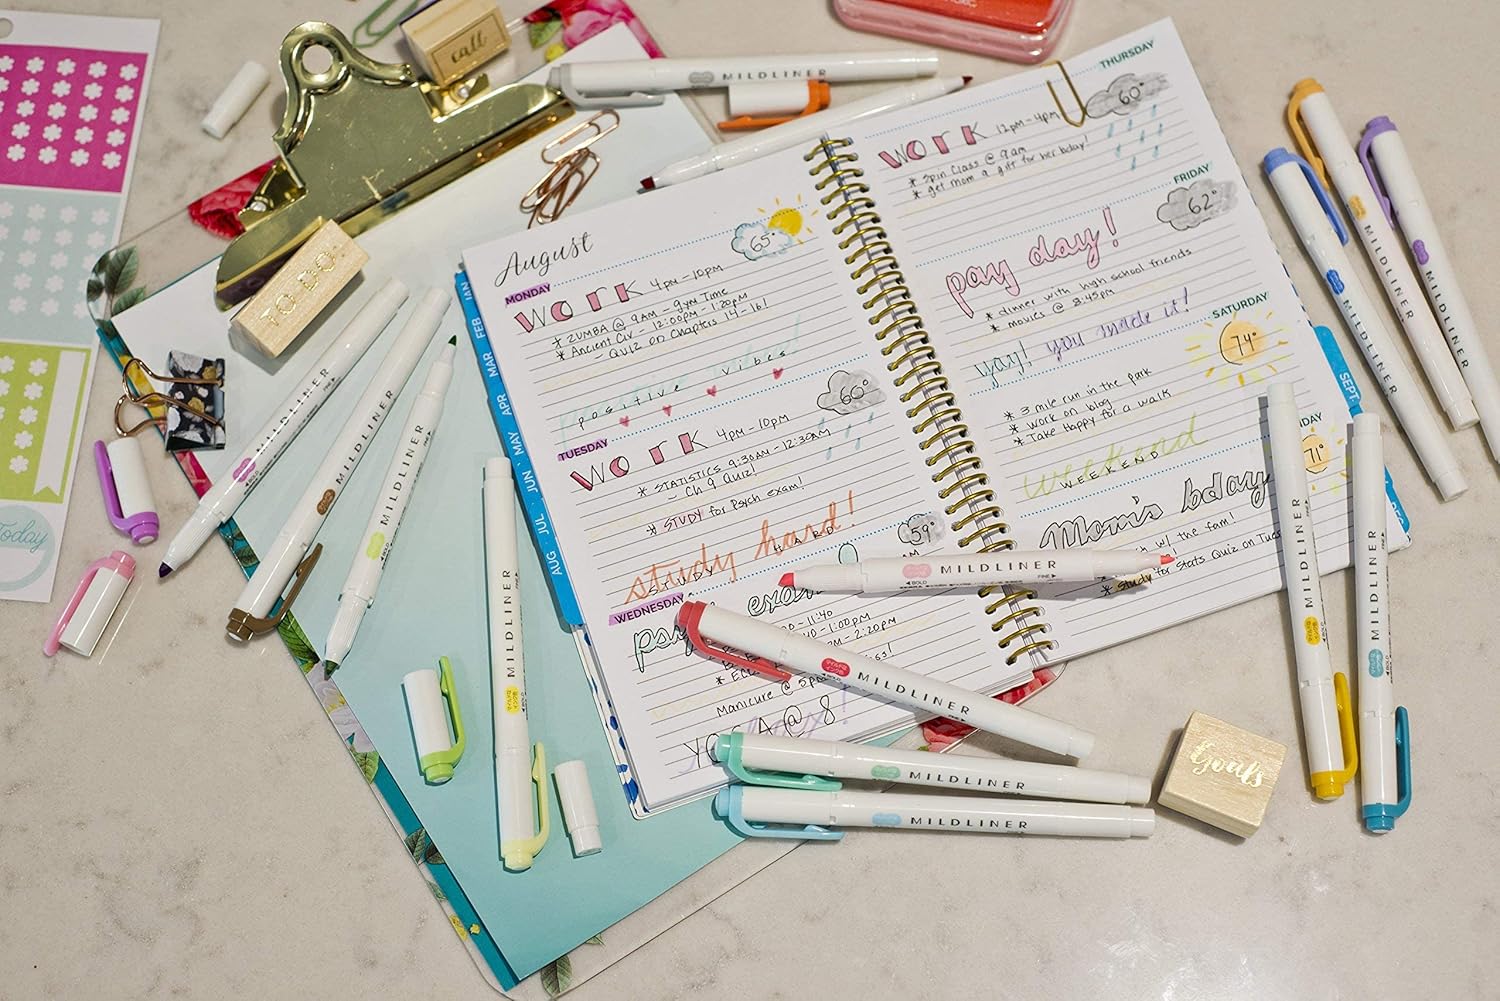 call
MILDLINER
TO DO:
Today
August
MONDAY
WORK 4pm - 10pm
* ZUMBA @ 9AM - gym Time
* Ancient Civ - 12:00pm - 1:20pm
- QUIZ on Chapters 14-16!
positive vibes
65°
TUESDAY
WORK 4pm - 10pm
* STATISTICS 9:30AM - 12:30AM
- Ch 9 Quiz!
* STUDY for Psych exam!
study hard!
STUDY HARD
66°
WEDNESDAY
59°
- 11:40
- 1:00pm
- 2:20pm
Manicure @
YOGA @ 8
THURSDAY
WORK 12pm - 4pm
* Spin Class @ 9am
* get mom a gift for her bday!
60°
FRIDAY
pay day!
* dinner with high school friends
* movies @ 8:45pm
yay! you made it!
62°
SATURDAY
* 3 mile run in the park
* work on blog
* Take Happy for a walk
weekend
WEEKEND
74°
Mom's bday
w/ the fam!
* Study for Stats Quiz on Tues
71°
JAN
FEB
MAR
APR
MAY
JUN
JUL
AUG
SEPT
DEC
MILDLINER
MILDLINER
MILDLINER
MILDLINER
BOLD MILDLINER FINE
MILDLINER
MILDLINER
MILDLINER
MILDLINER
MILDLINER
MILDLINER
MILDLINER
MILDLINER
Goals